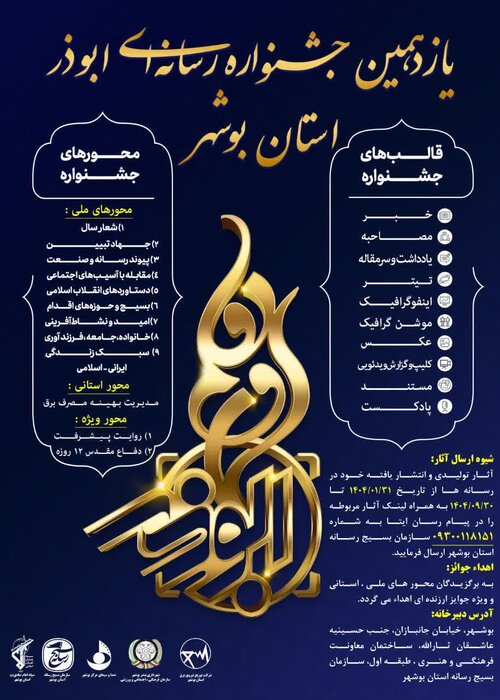 یازدهمین جشنواره رسانه‌ای ابوذر
استان بوشهر
قالب‌های
جشنواره
خبر
مصاحبه
یادداشت و سرمقاله
تیتر
اینفوگرافیک
موشن گرافیک
عکس
کلیپ و گزارش ویدئویی
مستند
پادکست
محورهای
جشنواره
محورهای ملی :
۱) شعار سال
۲) جهاد تبیین
۳) پیوند رسانه و صنعت
۴) مقابله با آسیب‌های اجتماعی
۵) دستاوردهای انقلاب اسلامی
۶) بسیج و حوزه‌های اقدام
۷) امید و نشاط آفرینی
۸) خانواده، جامعه، فرزندآوری
۹) سبک زندگی
ایرانی - اسلامی
محور استانی :
مدیریت بهینه مصرف برق
محور ویژه :
۱) روایت پیشرفت
۲) دفاع مقدس ۱۲ روزه
ابوذر
شیوه ارسال آثار:
آثار تولیدی و انتشار یافته خود در
رسانه ها از تاریخ ۱۴۰۴/۰۱/۳۱ تا
۱۴۰۴/۰۹/۳۰ به همراه لینک آثار مربوطه
را در پیام رسان ایتا به شماره
۰۹۳۰۰۱۱۸۱۵۱ سازمان بسیج رسانه
استان بوشهر ارسال فرمایید.
اهداء جوائز:
به برگزیدگان محور های ملی ، استانی
و ویژه جوایز ارزنده ای اهداء می گردد.
آدرس دبیرخانه:
بوشهر، خیابان جانبازان، جنب حسینیه
عاشقان ثارالله، ساختمان معاونت
فرهنگی و هنری ، طبقه اول، سازمان
بسیج رسانه استان بوشهر